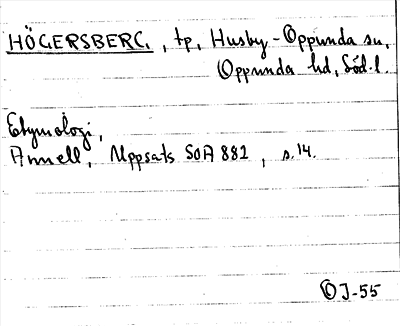 HÖGERSBERG, tp, Husby-Oppunda sn,
Oppunda hd, Söd.l.
Etymologi,
Annell, Uppsats SOA 882, s. 14.
OJ-55